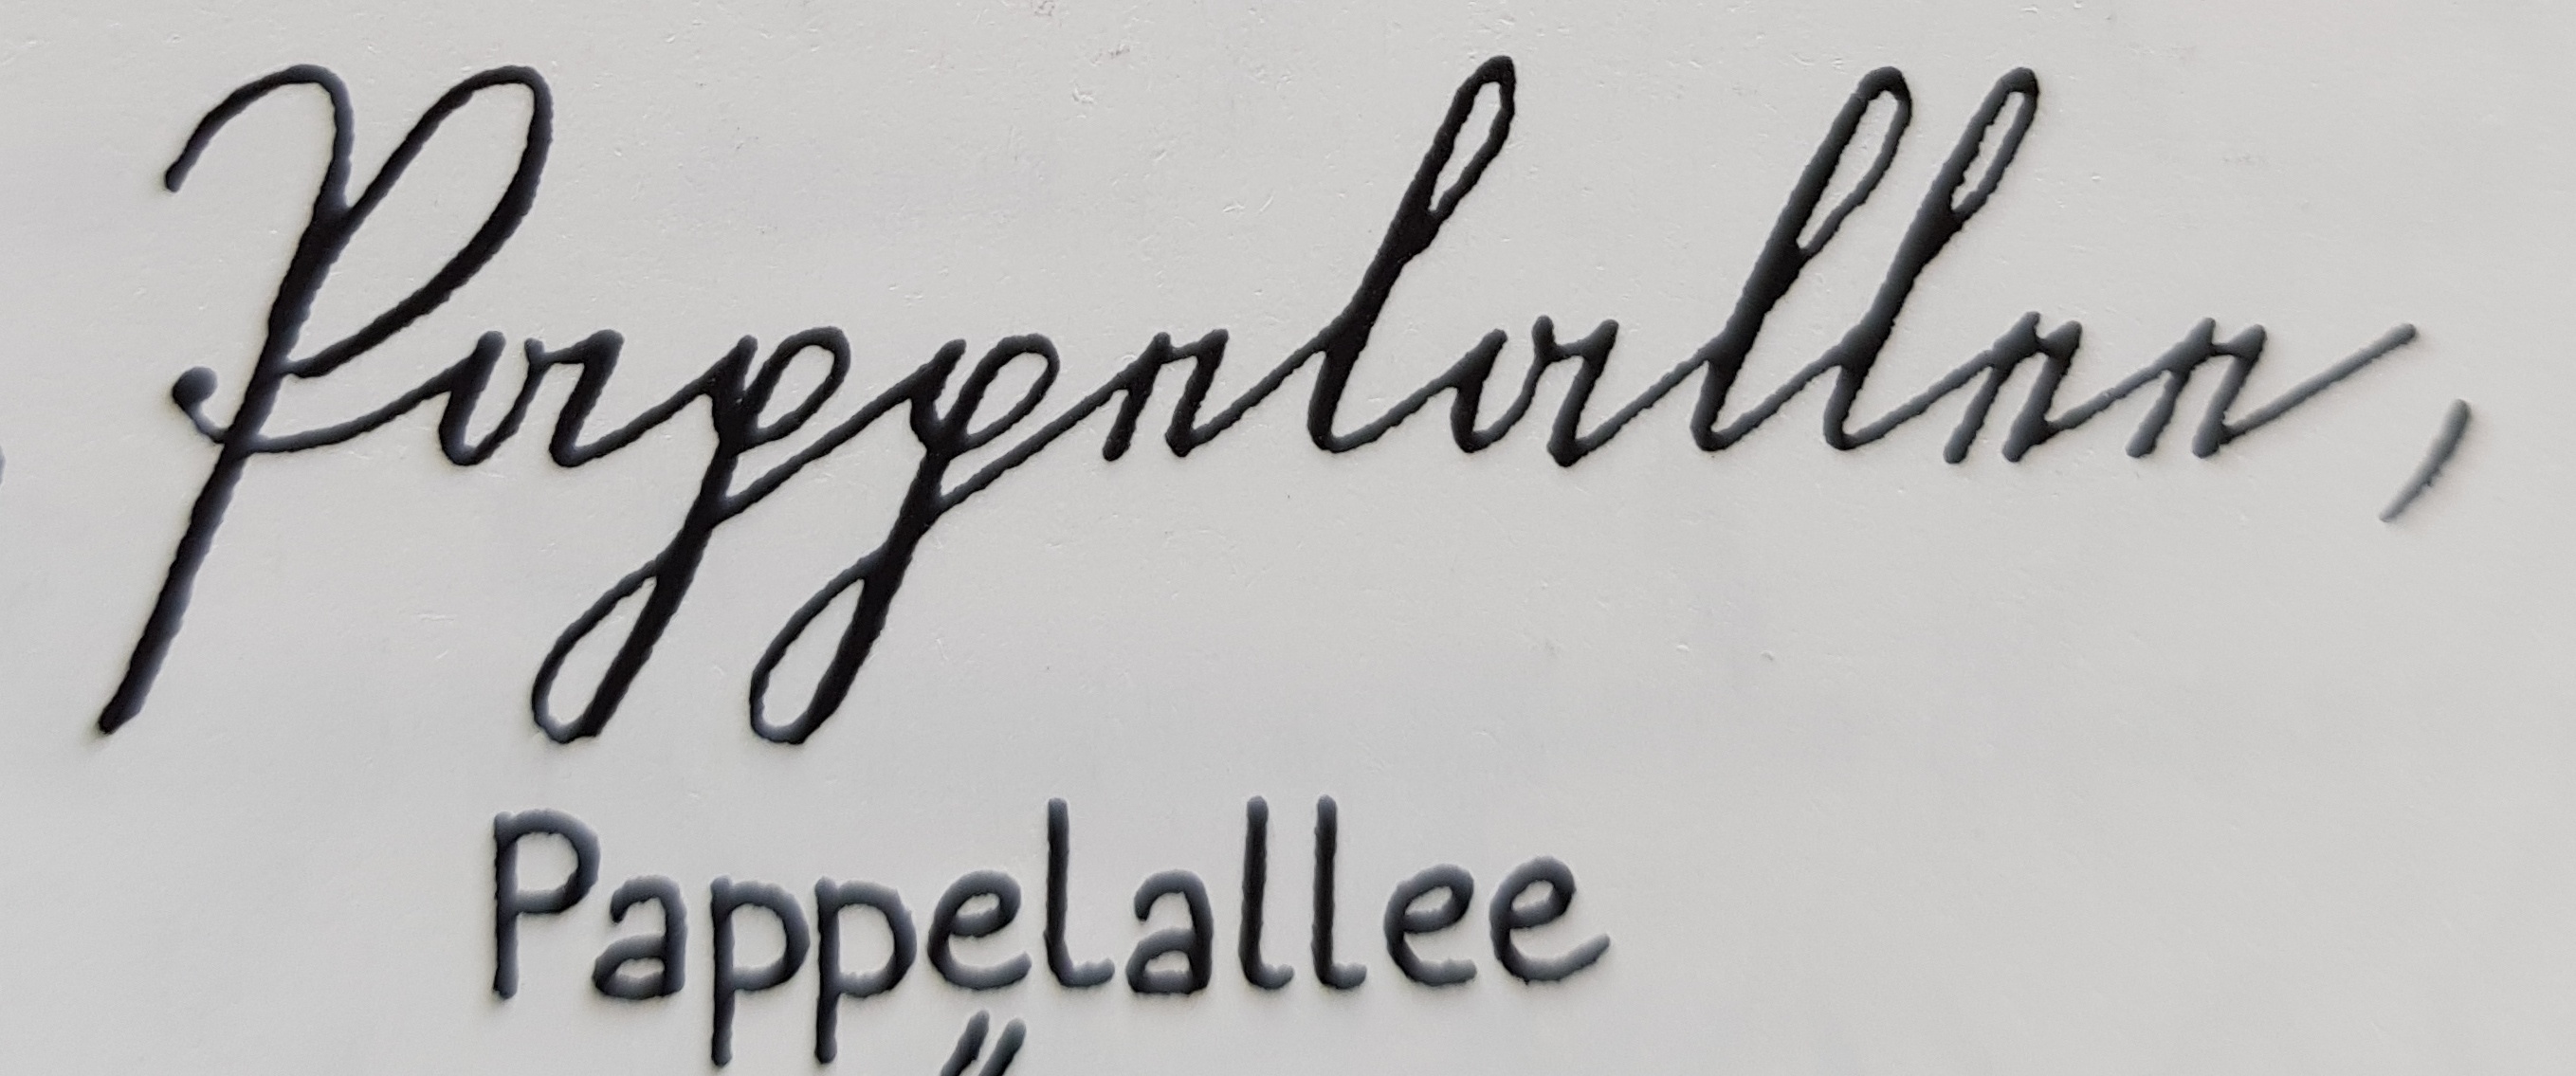 Pappelallee,
Pappelallee